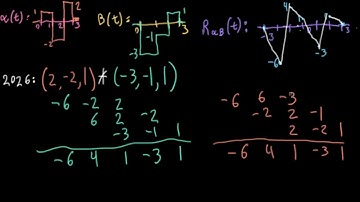 α(t): 1 2 -2 1 2 3
B(t): 1 0 -1 -3 3
R_αB(t): 4 -6 -3 -3 3
2026: (2,-2,1) * (-3,-1,1)
-6 -2 2
6 2 -2
-3 -1 1
-6 4 1 -3 1
-6 6 -3
-2 2 -1
2 -2 1
-6 4 1 -3 1